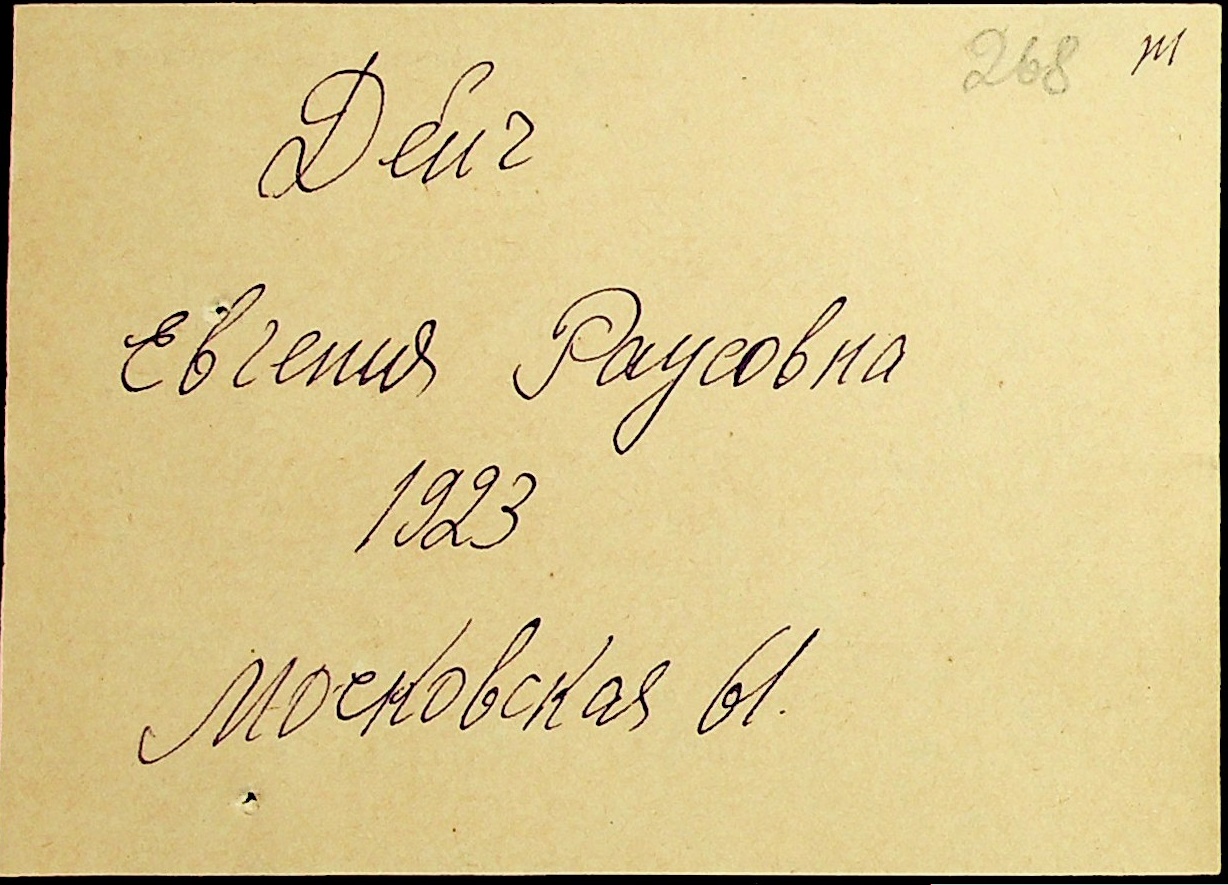 268 т
Дейч
Евгения Раусовна
1923
Московская 61.